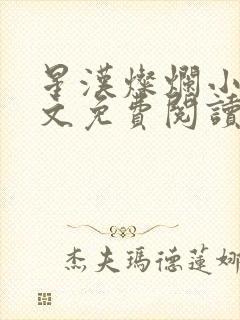 星漢燦爛小
文免費閱讀
杰夫瑪德蓮娜